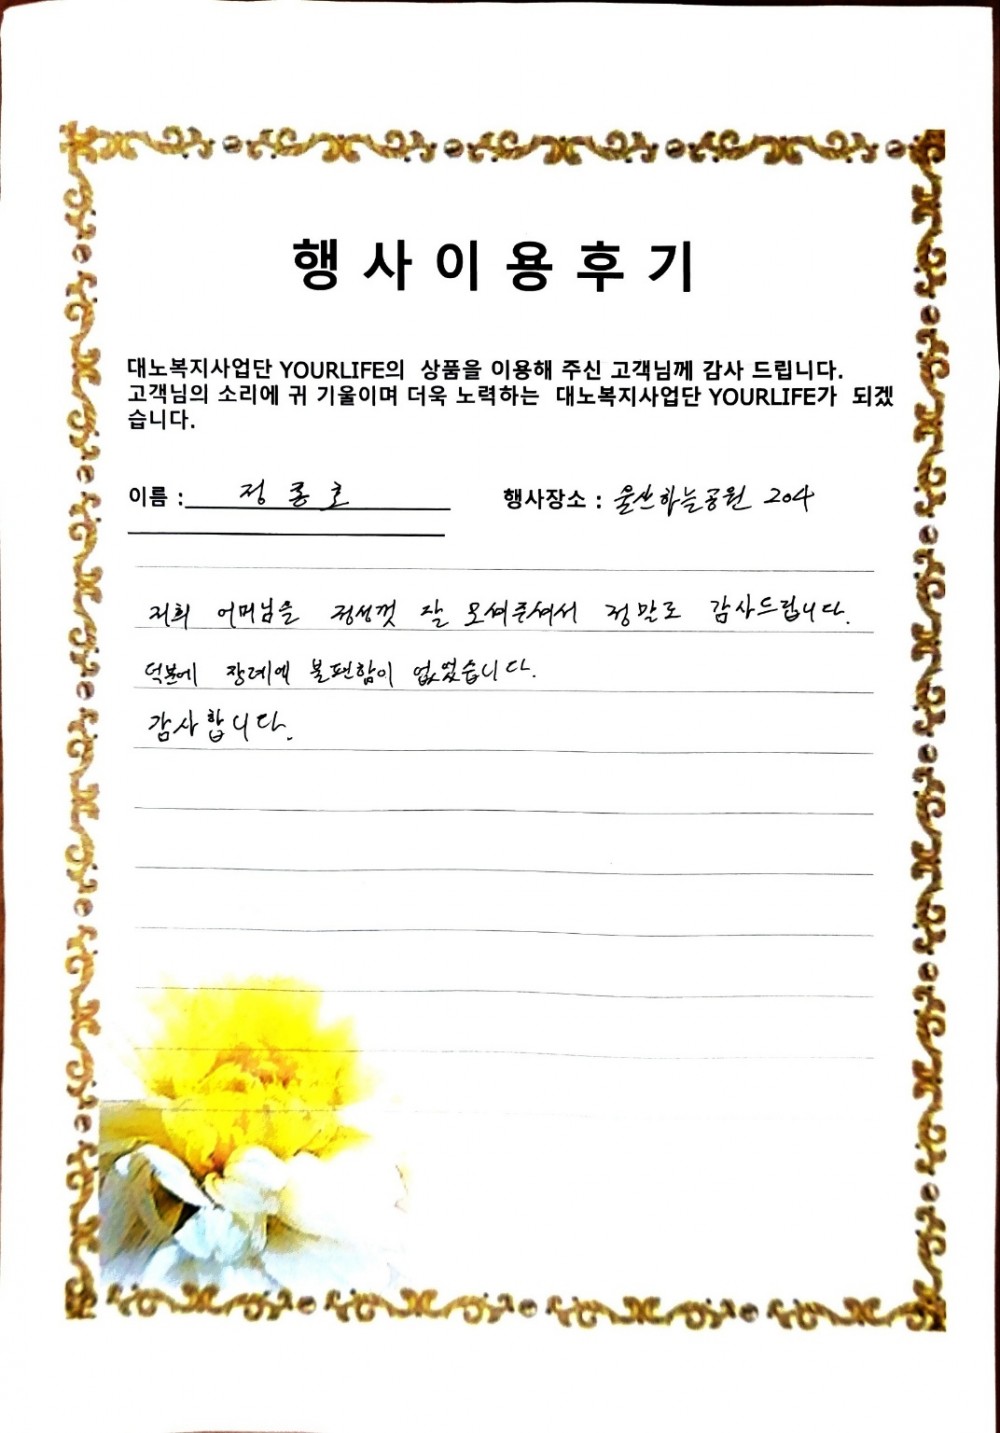 행사이용후기
대노복지사업단 YOURLIFE의 상품을 이용해 주신 고객님께 감사 드립니다.
고객님의 소리에 귀 기울이며 더욱 노력하는 대노복지사업단 YOURLIFE가 되겠
습니다.
이름 : 정종호 행사장소 : 울산하늘공원 204
저희 어머님을 정성껏 잘 모셔주셔서 정말로 감사드립니다.
덕분에 장례에 불편함이 없었습니다.
감사합니다.